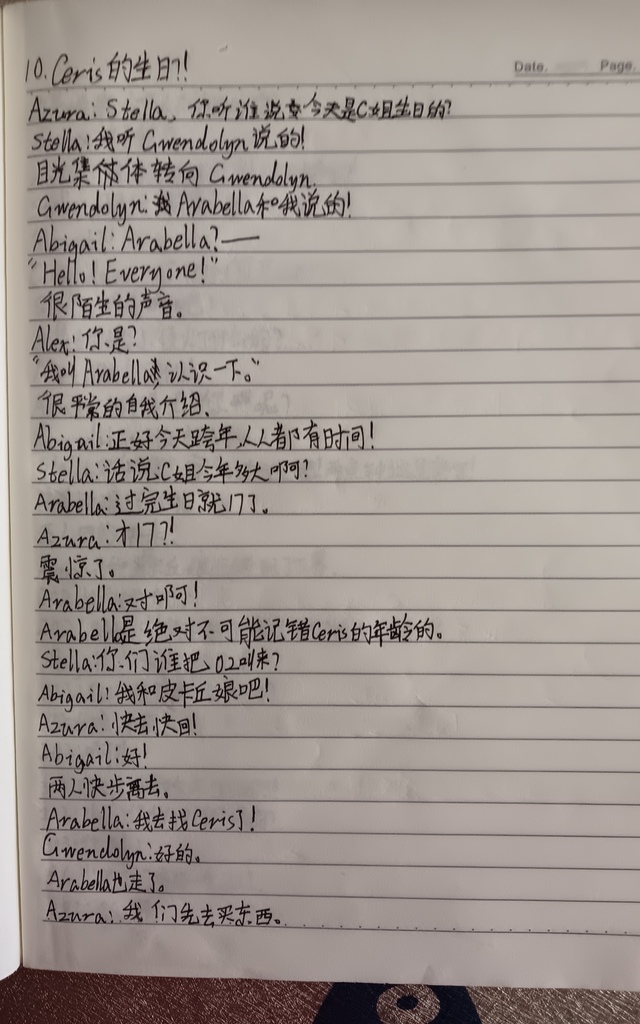 10. Ceris的生日?!
Date. Page.
Azura: Stella, 你听谁说今天是C姐生日的?
Stella: 我听Gwendolyn说的!
目光集体转向Gwendolyn.
Gwendolyn: Arabella和我说的!
Abigail: Arabella?——
"Hello! Everyone!"
很陌生的声音。
Alex: 你是?
"我叫Arabella, 认识一下。"
很平常的自我介绍.
Abigail: 正好今天跨年,人人都有时间!
Stella: 话说C姐今年多大啊?
Arabella: 过完生日就17了。
Azura: 才17?!
震惊了。
Arabella: 对啊!
Arabella是绝对不可能记错Ceris的年龄的。
Stella: 你们谁把02叫来?
Abigail: 我和皮卡丘娘吧!
Azura: 快去快回!
Abigail: 好!
两人快步离去。
Arabella: 我去找Ceris了!
Gwendolyn: 好的。
Arabella也走了。
Azura: 我们先去买东西。